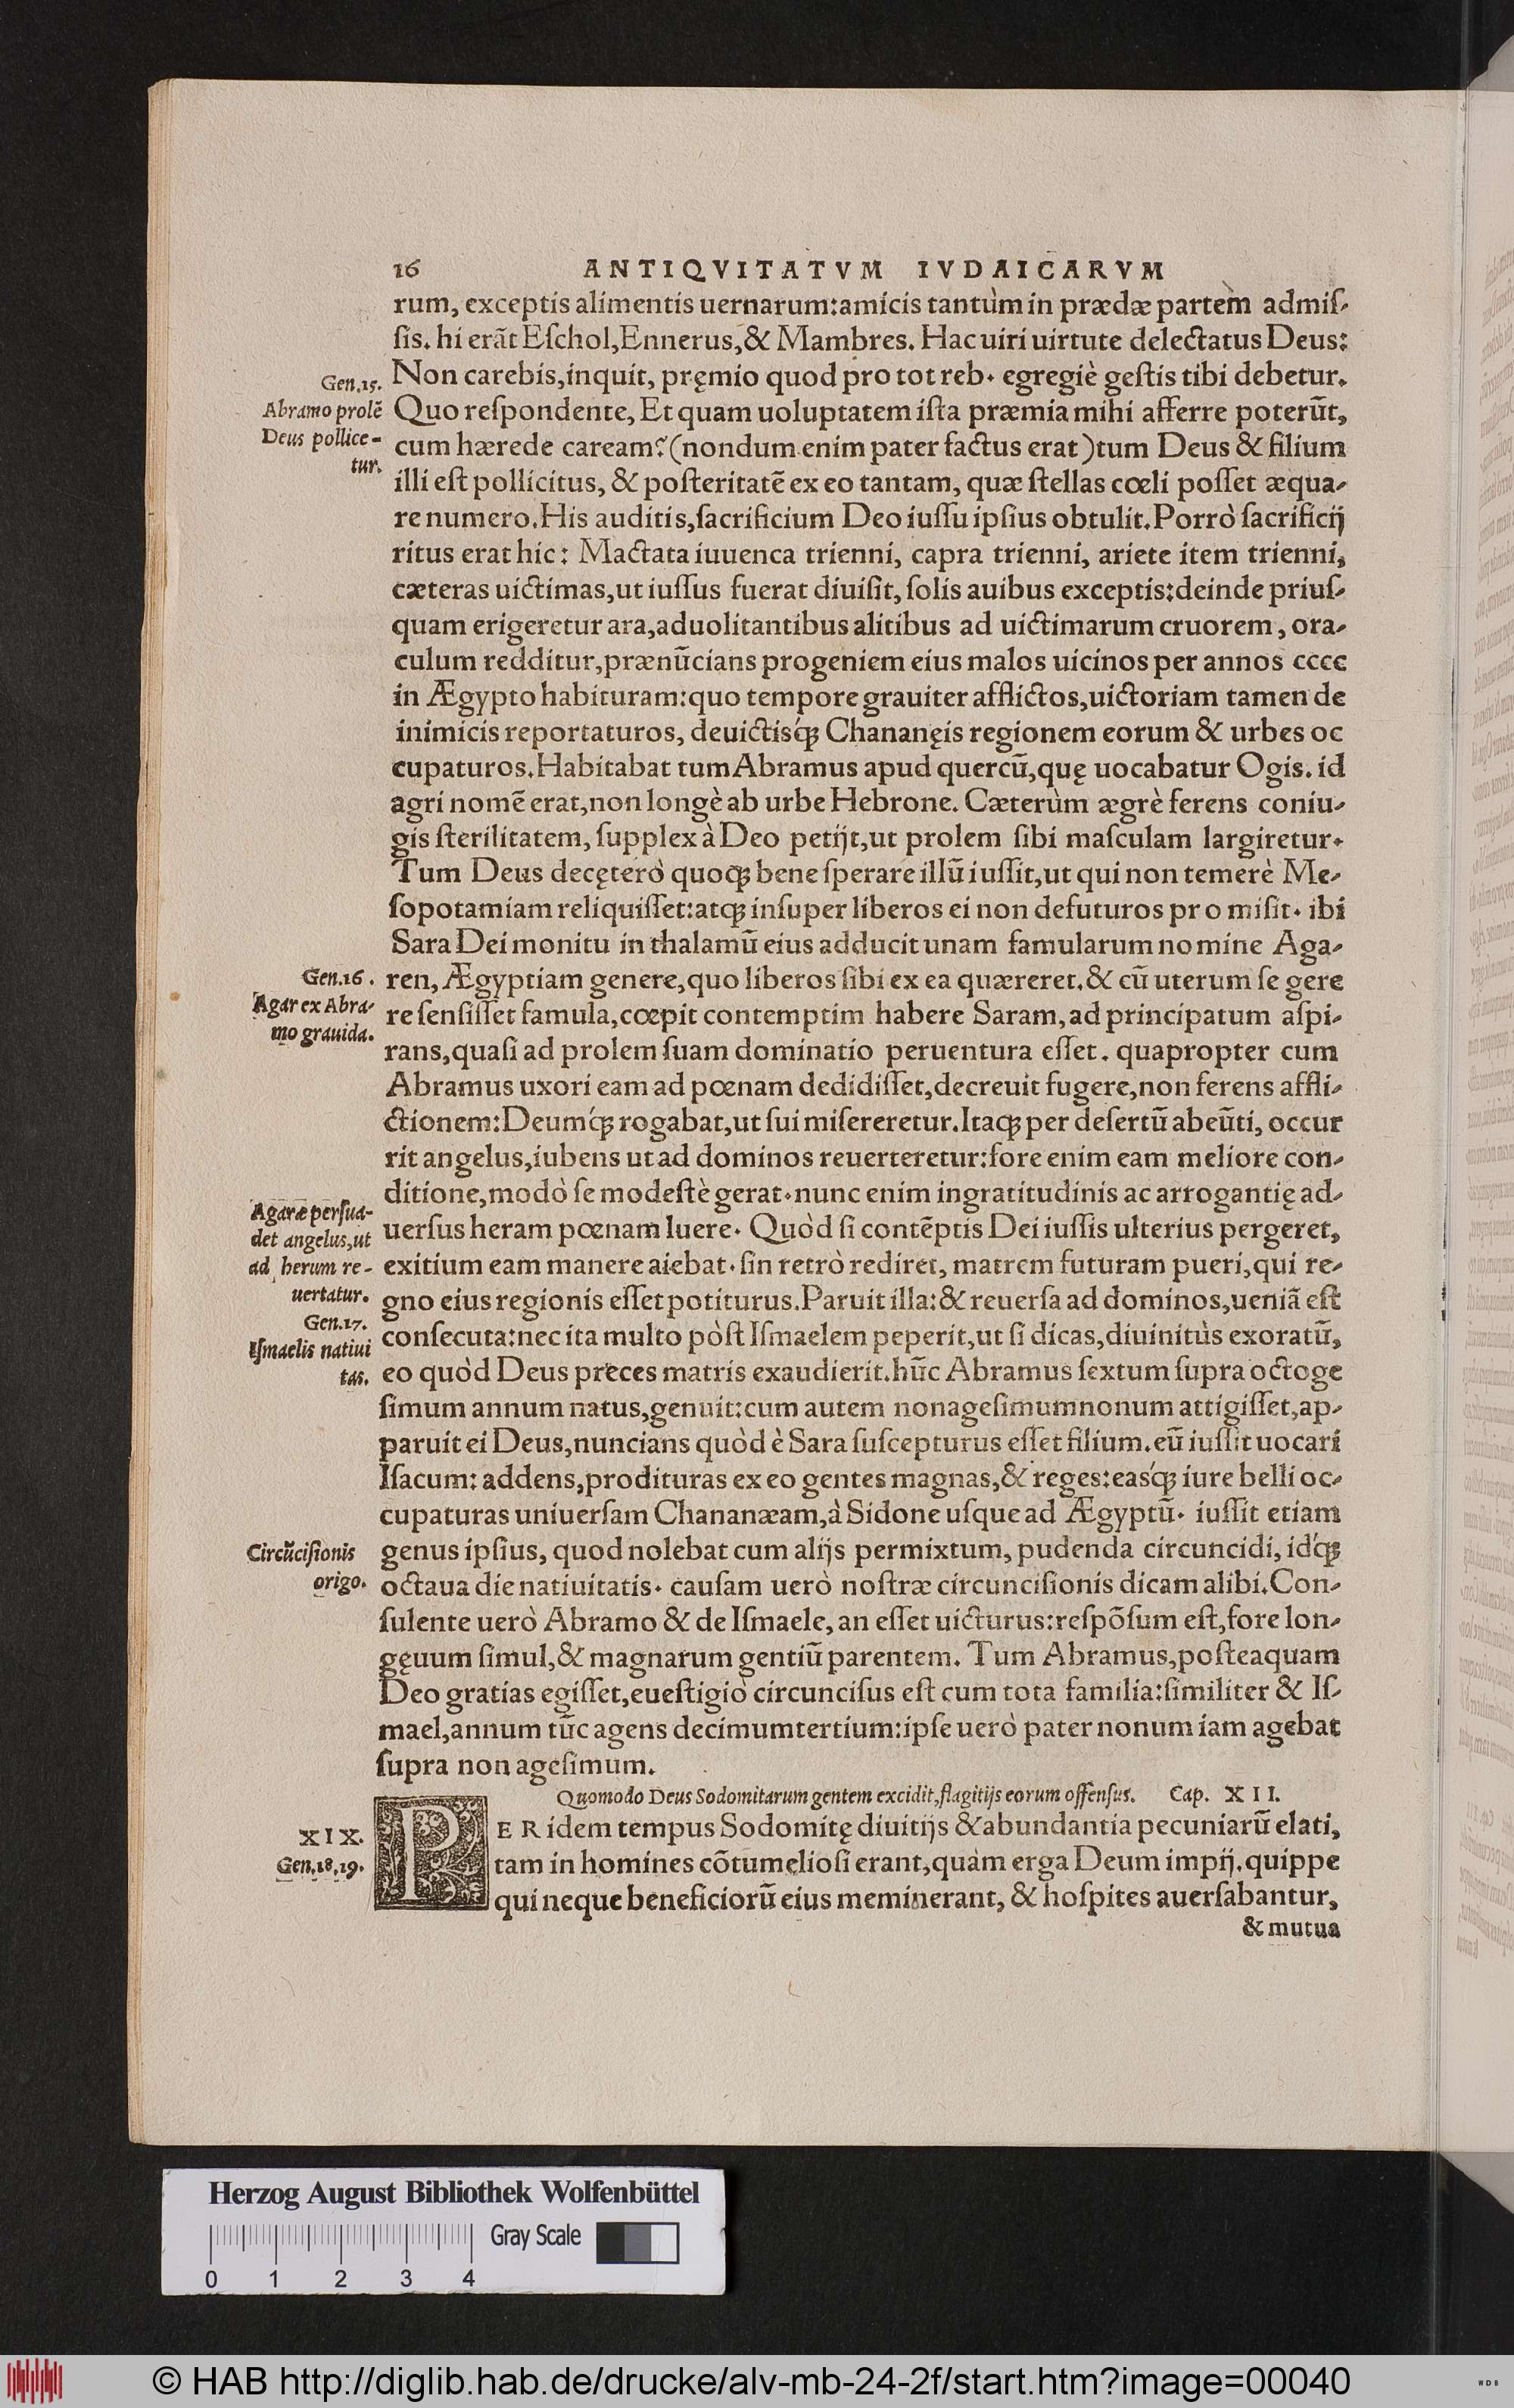 16 ANTIQVITATVM IVDAICARVM
rum, exceptis alimentis uernarum:amicis tantùm in prædæ partem admiſ-
ſis. hi erãt Eſchol,Ennerus,& Mambres. Hac uiri uirtute delectatus Deus:
Gen.15.
Non carebis,inquit, pręmio quod pro tot reb. egregiè geſtis tibi debetur.
Abramo prolẽ
Quo reſpondente, Et quam uoluptatem iſta præmia mihi afferre poterũt,
Deus pollice-
cum hærede caream?(nondum enim pater factus erat)tum Deus & filium
tur.
illi eſt pollicitus, & poſteritatẽ ex eo tantam, quæ ſtellas cœli poſſet æqua-
re numero.His auditis,ſacrificium Deo iuſſu ipſius obtulit.Porrò ſacrificij
ritus erat hic: Mactata iuuenca trienni, capra trienni, ariete item trienni,
cæteras uictimas,ut iuſſus fuerat diuiſit, ſolis auibus exceptis:deinde priuſ-
quam erigeretur ara,aduolitantibus alitibus ad uictimarum cruorem, ora-
culum redditur,prænũcians progeniem eius malos uicinos per annos cccc
in Ægypto habituram:quo tempore grauiter afflictos,uictoriam tamen de
inimicis reportaturos, deuictisq́ꝫ Chananęis regionem eorum & urbes oc
cupaturos.Habitabat tum Abramus apud quercũ,quę uocabatur Ogis. id
agri nomẽ erat,non longè ab urbe Hebrone. Cæterùm ægrè ferens coniu-
gis ſterilitatem, ſupplex à Deo petijt,ut prolem ſibi maſculam largiretur.
Tum Deus decęterò quoqꝫ bene ſperare illũ iuſſit,ut qui non temerè Me-
ſopotamiam reliquiſſet:atqꝫ inſuper liberos ei non defuturos pro miſit. ibi
Sara Dei monitu in thalamũ eius adducit unam famularum nomine Aga-
Gen.16.
ren, Ægyptiam genere,quo liberos ſibi ex ea quæreret.& cũ uterum ſe gere
Agar ex Abra-
re ſenſiſſet famula,cœpit contemptim habere Saram,ad principatum aſpi-
mo grauida.
rans,quaſi ad prolem ſuam dominatio peruentura eſſet. quapropter cum
Abramus uxori eam ad pœnam dedidiſſet,decreuit fugere,non ferens affli-
ctionem:Deumq́ꝫ rogabat,ut ſui miſereretur.Itaqꝫ per deſertũ abeũti, occur
rit angelus,iubens ut ad dominos reuerteretur:fore enim eam meliore con-
ditione,modò ſe modeſtè gerat.nunc enim ingratitudinis ac arrogantię ad-
Agaræ perſua-
uerſus heram pœnam luere. Quòd ſi contẽptis Dei iuſſis ulterius pergeret,
det angelus,ut
ad herum re-
exitium eam manere aiebat.ſin retrò rediret, matrem futuram pueri,qui re-
uertatur.
gno eius regionis eſſet potiturus.Paruit illa:& reuerſa ad dominos,ueniã eſt
Gen.17.
conſecuta:nec ita multo pòſt Iſmaelem peperit,ut ſi dicas,diuinitùs exoratũ,
Iſmaelis natiui
tas.
eo quòd Deus preces matris exaudierit.hũc Abramus ſextum ſupra octoge
ſimum annum natus,genuit:cum autem nonageſimumnonum attigiſſet,ap-
paruit ei Deus,nuncians quòd è Sara ſuſcepturus eſſet filium.eũ iuſſit uocari
Iſacum: addens,prodituras ex eo gentes magnas,& reges:easq́ꝫ iure belli oc-
cupaturas uniuerſam Chananæam,à Sidone uſque ad Ægyptũ. iuſſit etiam
Circũciſionis
genus ipſius, quod nolebat cum alijs permixtum, pudenda circuncidi, idq́ꝫ
origo.
octaua die natiuitatis. cauſam uerò noſtræ circunciſionis dicam alibi.Con-
ſulente uerò Abramo & de Iſmaele, an eſſet uicturus:reſpõſum eſt,fore lon-
gęuum ſimul,& magnarum gentiũ parentem. Tum Abramus,poſteaquam
Deo gratias egiſſet,eueſtigiò circunciſus eſt cum tota familia:ſimiliter & Iſ-
mael,annum tũc agens decimumtertium:ipſe uerò pater nonum iam agebat
ſupra nonageſimum.
Quomodo Deus Sodomitarum gentem excidit,flagitijs eorum offenſus. Cap. XII.
XIX.
PER idem tempus Sodomitę diuitijs & abundantia pecuniarũ elati,
Gen.18.19.
tam in homines cõtumelioſi erant,quàm erga Deum impij.quippe
qui neque beneficiorũ eius meminerant, & hoſpites auerſabantur,
& mutua
Herzog August Bibliothek Wolfenbüttel
Gray Scale
0 1 2 3 4
© HAB http://diglib.hab.de/drucke/alv-mb-24-2f/start.htm?image=00040
WDB